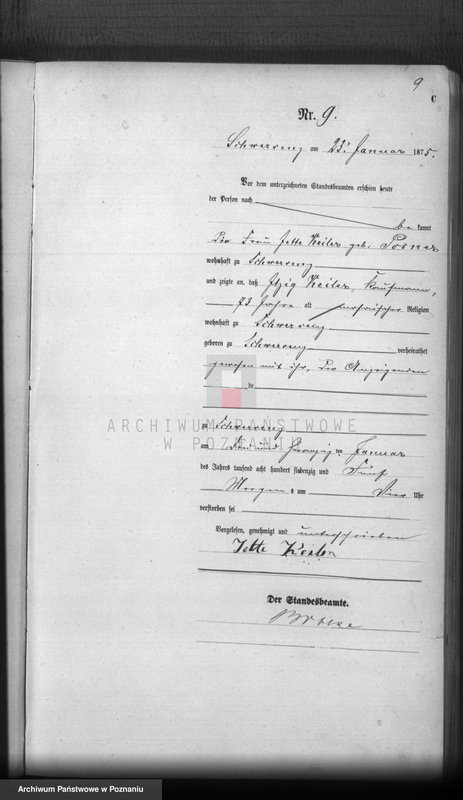 9
C
Nr. 9.
Schwersenz am 23. Januar 1875.
Vor dem unterzeichneten Standesbeamten erschien heute
der Person nach
be kannt
die Frau Jette Keiler geb. Posner
wohnhaft zu Schwersenz
und zeigte an, daß Itzig Keiler, Kaufmann,
73 Jahre alt mosaischer Religion
wohnhaft zu Schwersenz
geboren zu Schwersenz verheirathet
gewesen mit ihr, der Anzeigenden
de
ARCHIWUM PAŃSTWOWE
W POZNANIU
zu Schwersenz
am drei und zwanzig ten Januar
des Jahres tausend acht hundert siebenzig und Fünf
Morgens um Vier Uhr
verstorben sei
Vorgelesen, genehmigt und unterschrieben
Jette Keiler
Der Standesbeamte.
Archiwum Państwowe w Poznaniu